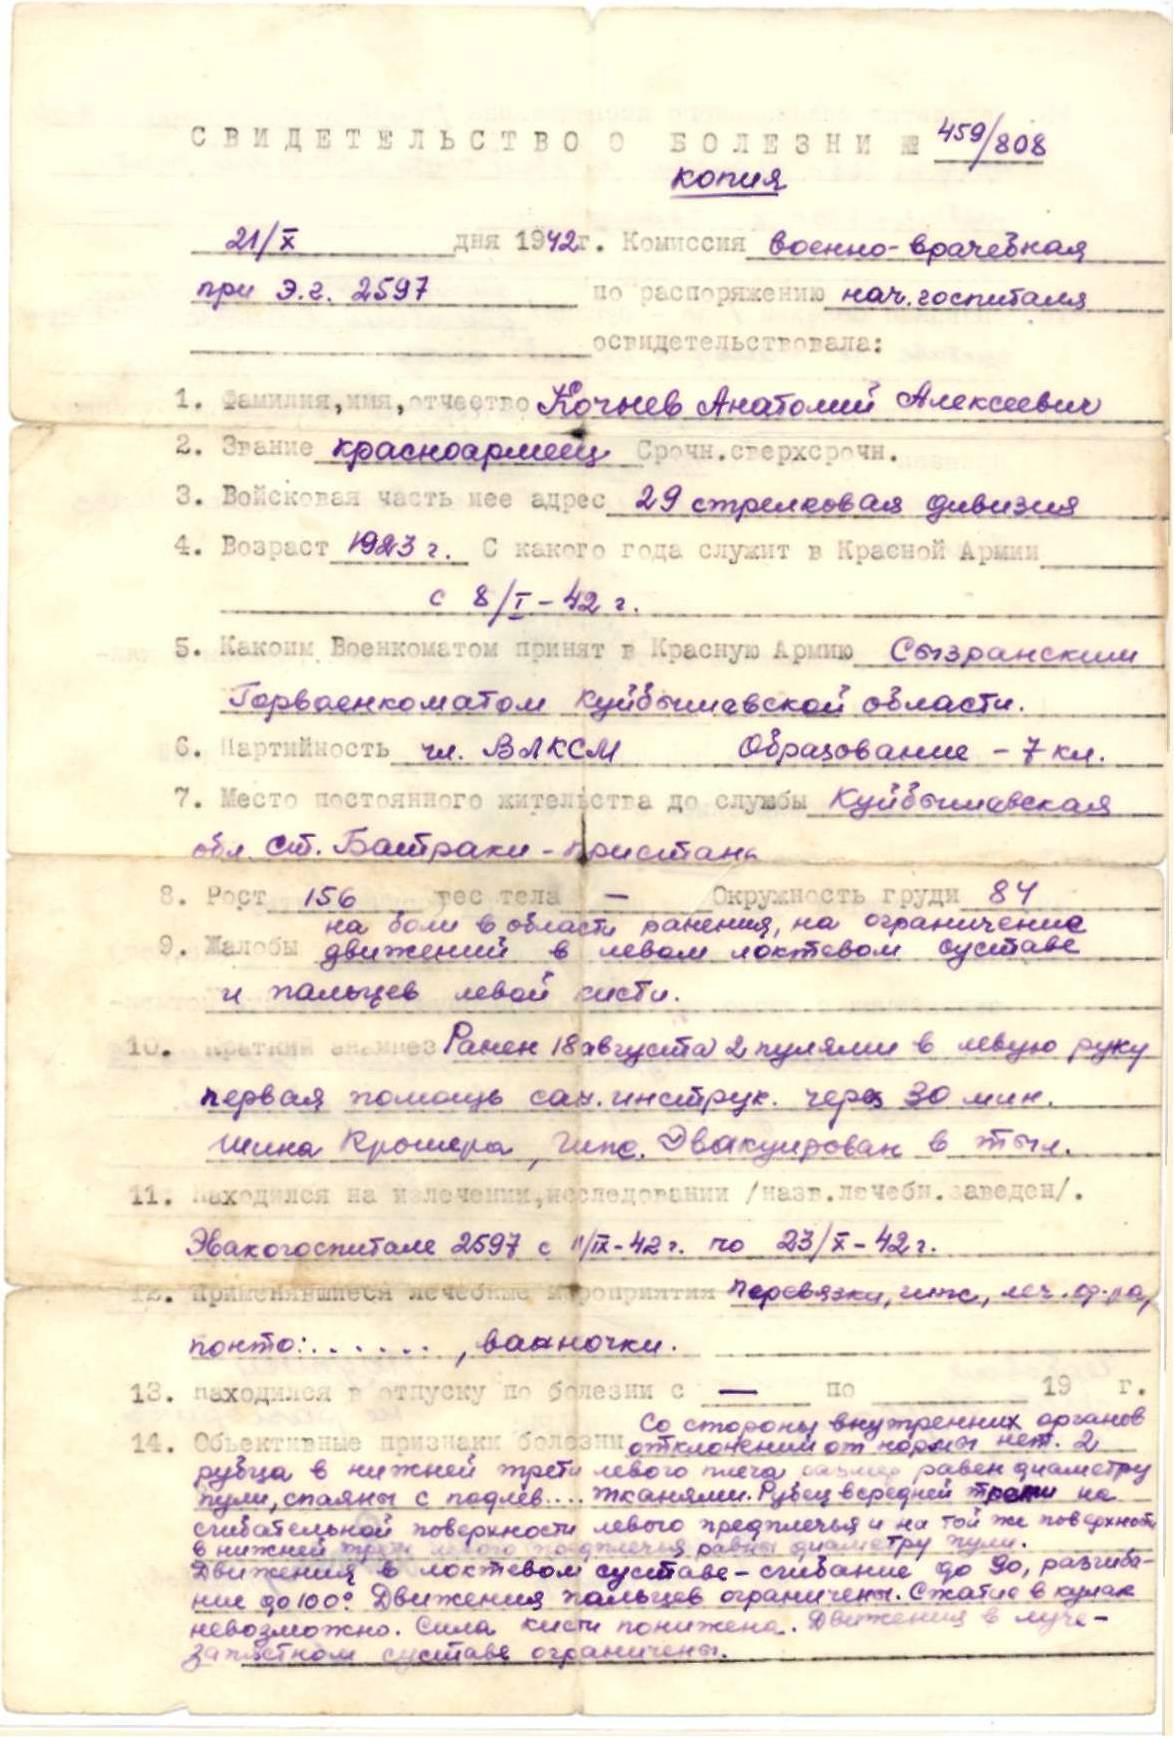 СВИДЕТЕЛЬСТВО О БОЛЕЗНИ № 459/808
копия
21/X дня 1942г. Комиссия военно-врачебная
при Э.г. 2597 по распоряжению нач. госпиталя
освидетельствовала:
1. Фамилия,имя,отчество Кочнев Анатолий Алексеевич
2. Звание красноармеец Срочн.сверхсрочн.
3. Войсковая часть иее адрес 29 стрелковая дивизия
4. Возраст 1923 г. С какого года служит в Красной Армии
с 8/I-42 г.
5. Какоим Военкоматом принят в Красную Армию Сызранским
Горвоенкоматом Куйбышевской области.
6. Партийность чл. ВЛКСМ Образование - 7 кл.
7. Место постоянного жительства до службы Куйбышевская
обл. ст. Батраки - пристань
8. Рост 156 вес тела — Окружность груди 84
на боли в области ранения, на ограничение
9. Жалобы движений в левом локтевом суставе
и пальцев левой кисти.
10. Краткий анамнез Ранен 18 августа 2 пулями в левую руку
первая помощь сан. инструк. через 30 мин.
шина Крамера, гипс. Эвакуирован в тыл.
11. Находился на излечении,исследовании /назв.лечебн.заведен/.
Эвакогоспитале 2597 с 11/IX-42 г. по 23/X-42 г.
12. Применявшиеся лечебные мероприятия перевязки, гипс, леч. ф-ра,
понто:......, ванночки.
13. находился в отпуску по болезни с — по 19 г.
Со стороны внутренних органов
14. Объективные признаки болезни отклонений от нормы нет. 2
рубца в нижней трети левого плеча размер равен диаметру
пули, спаяны с подлеж.... тканями. Рубец в средней трети на
сгибательной поверхности левого предплечья и на той же поверхности
в нижней трети левого предплечья равны диаметру пули.
Движения в локтевом суставе - сгибание до 90, разгиба-
ние до 100°. Движения пальцев ограничены. Сжатие в кулак
невозможно. Сила кисти понижена. Движения в луче-
запястном суставе ограничены.